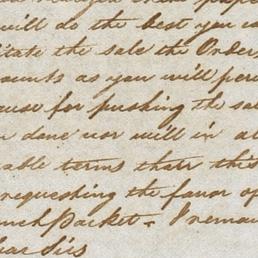 will do the best you ca
itate the sale the Orders
ounts as you will perc
ause for pushing the sal
n done nor will in a
able terms than this
requesting the favor of
nch Packet - I remain
ear Sirs